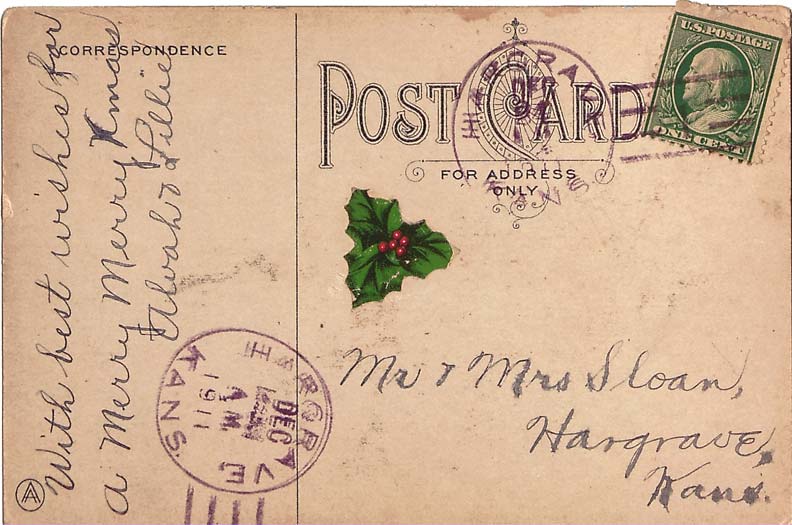 CORRESPONDENCE
With best wishes for
a Merry Merry Xmas
Alvah & Lillie
POST CARD
FOR ADDRESS
ONLY
U.S. POSTAGE
ONE CENT
DEC
1911
KANS.
Mr & Mrs Sloan,
Hargrave,
Kans.
KANS.
DEC
AM
1911